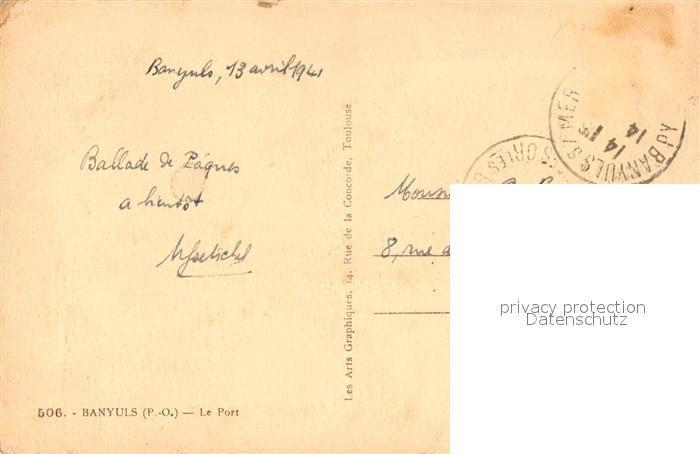 Banyuls, 13 avril 1941
Ballade de Pâques
a bientôt
506. - BANYULS (P.-O.) — Le Port
Les Arts Graphiques, 14, Rue de la Concorde, Toulouse
BANYULS S/ MER
14
8, rue
privacy protection
Datenschutz